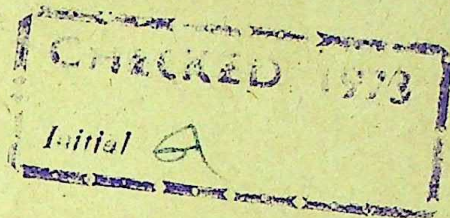 CHECKED 1973
Initial a